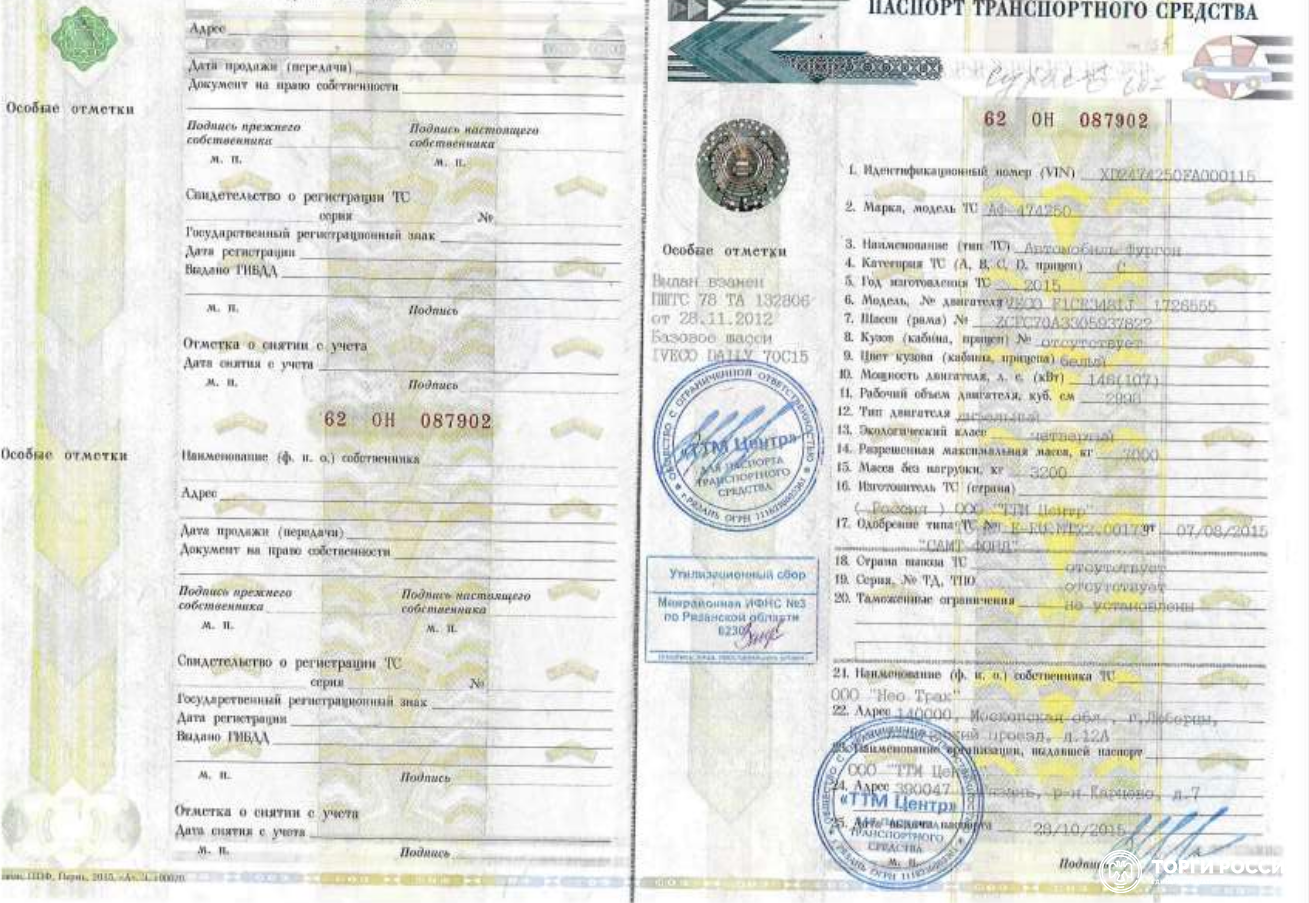 Адрес
Дата продажи (передачи)
Документ на право собственности
Особые отметки
Подпись прежнего собственника
Подпись настоящего собственника
М. П.
М. П.
Свидетельство о регистрации ТС
серия №
Государственный регистрационный знак
Дата регистрации
Выдано ГИБДД
М. П. Подпись
Отметка о снятии с учета
Дата снятия с учета
М. П. Подпись
62 ОН 087902
Особые отметки
Наименование (ф. и. о.) собственника
Адрес
Дата продажи (передачи)
Документ на право собственности
Подпись прежнего собственника
Подпись настоящего собственника
М. П.
М. П.
Свидетельство о регистрации ТС
серия №
Государственный регистрационный знак
Дата регистрации
Выдано ГИБДД
М. П. Подпись
Отметка о снятии с учета
Дата снятия с учета
М. П. Подпись
ППФ, Пермь, 2015, «А».
ПАСПОРТ ТРАНСПОРТНОГО СРЕДСТВА
62 ОН 087902
1. Идентификационный номер (VIN) XD2474250FA000115
2. Марка, модель ТС АФ-474250
3. Наименование (тип ТС) Автомобиль Фургон
4. Категория ТС (А, В, С, D, прицеп) С
5. Год изготовления ТС 2015
6. Модель, № двигателя IVECO F1CE3481J 1726555
7. Шасси (рама) № ZCFC70A3305937822
8. Кузов (кабина, прицеп) № отсутствует
9. Цвет кузова (кабины, прицепа) белый
10. Мощность двигателя, л. с. (кВт) 146(107)
11. Рабочий объем двигателя, куб. см 2998
12. Тип двигателя дизельный
13. Экологический класс четвертый
14. Разрешенная максимальная масса, кг 7000
15. Масса без нагрузки, кг 3200
16. Изготовитель ТС (страна)
( Россия ) ООО "ТТМ Центр"
17. Одобрение типа ТС № E-RU.MTX2.00173 от 07/08/2015
"САМТ-ФОНД"
18. Страна вывоза ТС отсутствует
19. Серия, № ТД, ТПО отсутствует
20. Таможенные ограничения не установлены
21. Наименование (ф. и. о.) собственника ТС
ООО "Нео Трак"
22. Адрес 140000, Московская обл., г.Люберцы,
проезд, д.12А
23. Наименование организации, выдавшей паспорт
ООО "ТТМ Центр"
24. Адрес 390047 Рязань, р-н Карцево, д.7
25. Дата выдачи паспорта 29/10/2015
М. П. Подпись
Особые отметки
Выдан взамен
ПШТС 78 ТА 132806
от 28.11.2012
Базовое шасси
IVECO DAILY 70C15
ОБЩЕСТВО С ОГРАНИЧЕННОЙ ОТВЕТСТВЕННОСТЬЮ
«ТТМ Центр»
ДЛЯ ПАСПОРТА
ТРАНСПОРТНОГО
СРЕДСТВА
г.РЯЗАНЬ ОГРН
Утилизационный сбор
Межрайонная ИФНС №3
по Рязанской области
6230
«ТТМ Центр»
ДЛЯ ПАСПОРТА
ТРАНСПОРТНОГО
СРЕДСТВА
ТОРГИ РОССИ